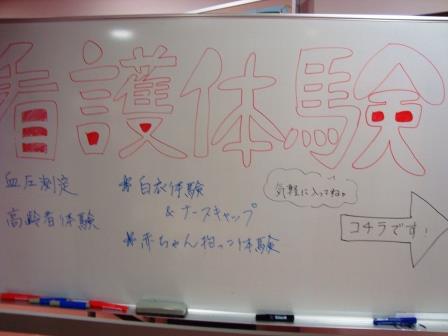 看護体験
血圧測定
高齢者体験
白衣体験
& ナースキャップ
赤ちゃん抱っこ体験
気軽に入ってね。
コチラです!